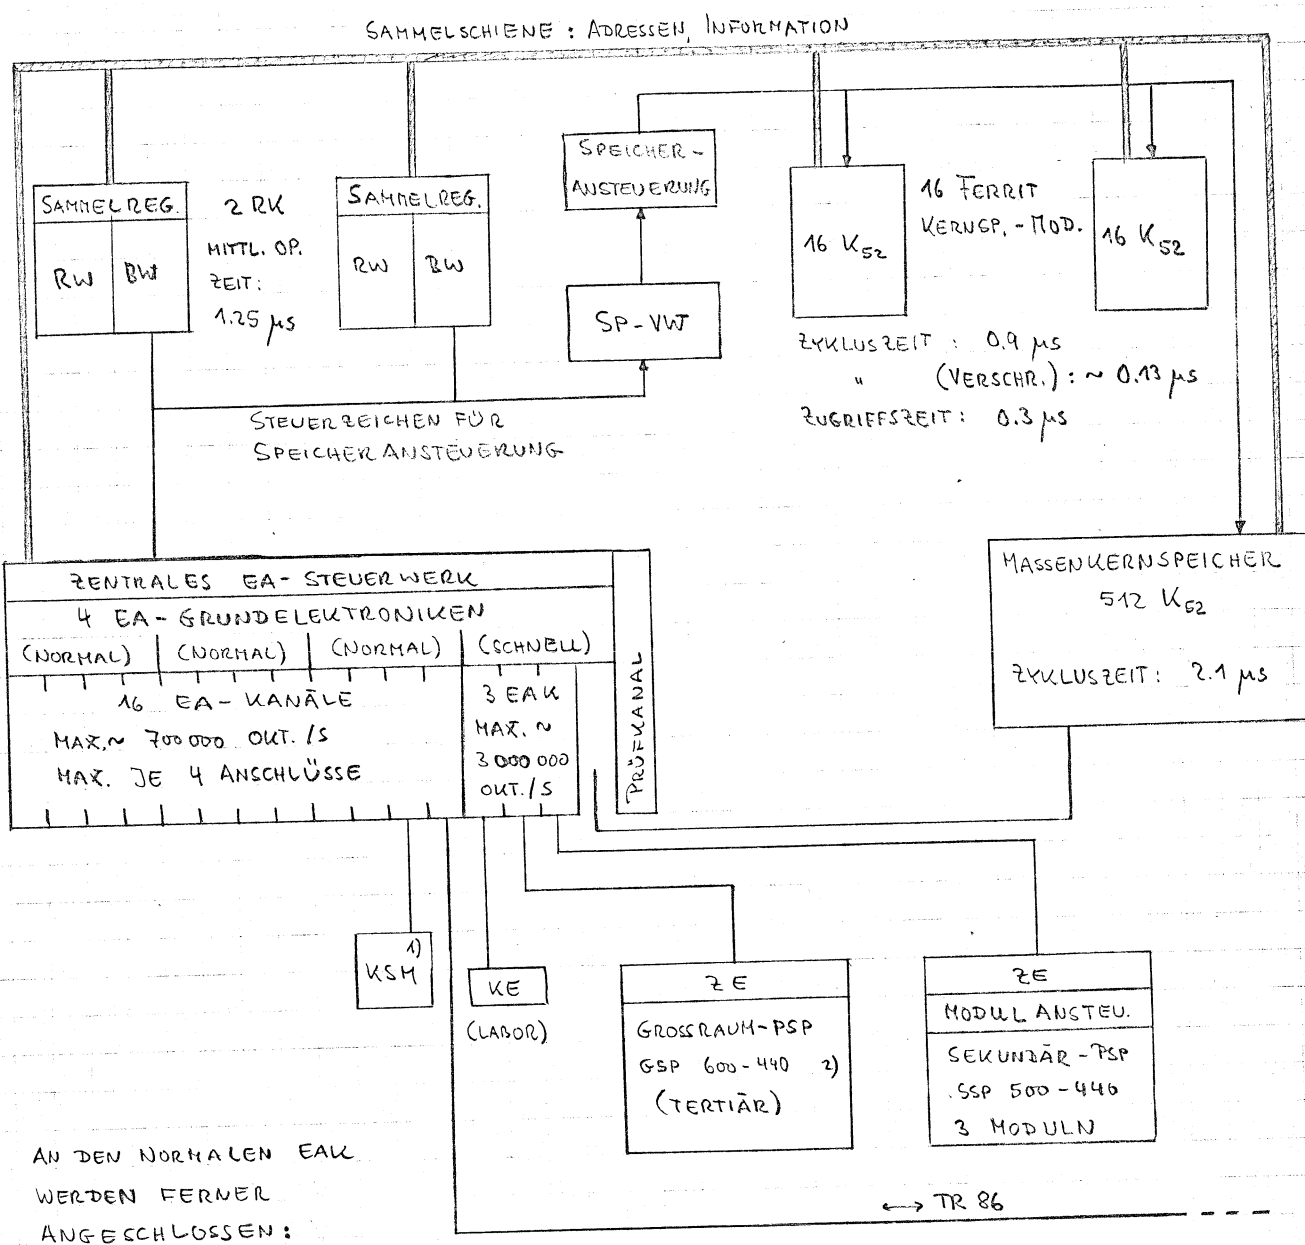 SAMMELSCHIENE : ADRESSEN, INFORMATION
SAMMELREG.
RW
BW
2 RK
MITTL. OP.
ZEIT :
1.25 µs
SAMMELREG.
RW
BW
SPEICHER-
ANSTEUERUNG
SP-VW
16 K52
16 FERRIT
KERNSP.-MOD.
16 K52
ZYKLUSZEIT : 0.9 µs
" (VERSCHR.) : ~ 0.13 µs
ZUGRIFFSZEIT : 0.3 µs
STEUERZEICHEN FÜR
SPEICHERANSTEUERUNG
ZENTRALES EA-STEUERWERK
4 EA-GRUNDELEKTRONIKEN
(NORMAL) (NORMAL) (NORMAL) (SCHNELL)
16 EA-KANÄLE
MAX. ~ 700 000 OKT. /S
MAX. JE 4 ANSCHLÜSSE
3 EAK
MAX. ~
3 000 000
OKT. /S
PRÜFKANAL
MASSENKERNSPEICHER
512 K52
ZYKLUSZEIT : 2.1 µs
KSM 1)
KE
(LABOR)
ZE
GROSSRAUM-PSP
GSP 600-440 2)
(TERTIÄR)
ZE
MODULANSTEU.
SEKUNDÄR-PSP
SSP 500-440
3 MODULN
AN DEN NORMALEN EAK
WERDEN FERNER
ANGESCHLOSSEN :
↔ TR 86